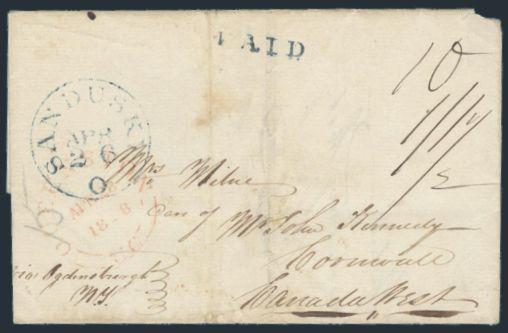 PAID
10
SANDUSKY
APR
26
O
Mrs Milne
Care of Mr John Kennedy
Cornwall
Canada West
via Ogdensburgh
NY